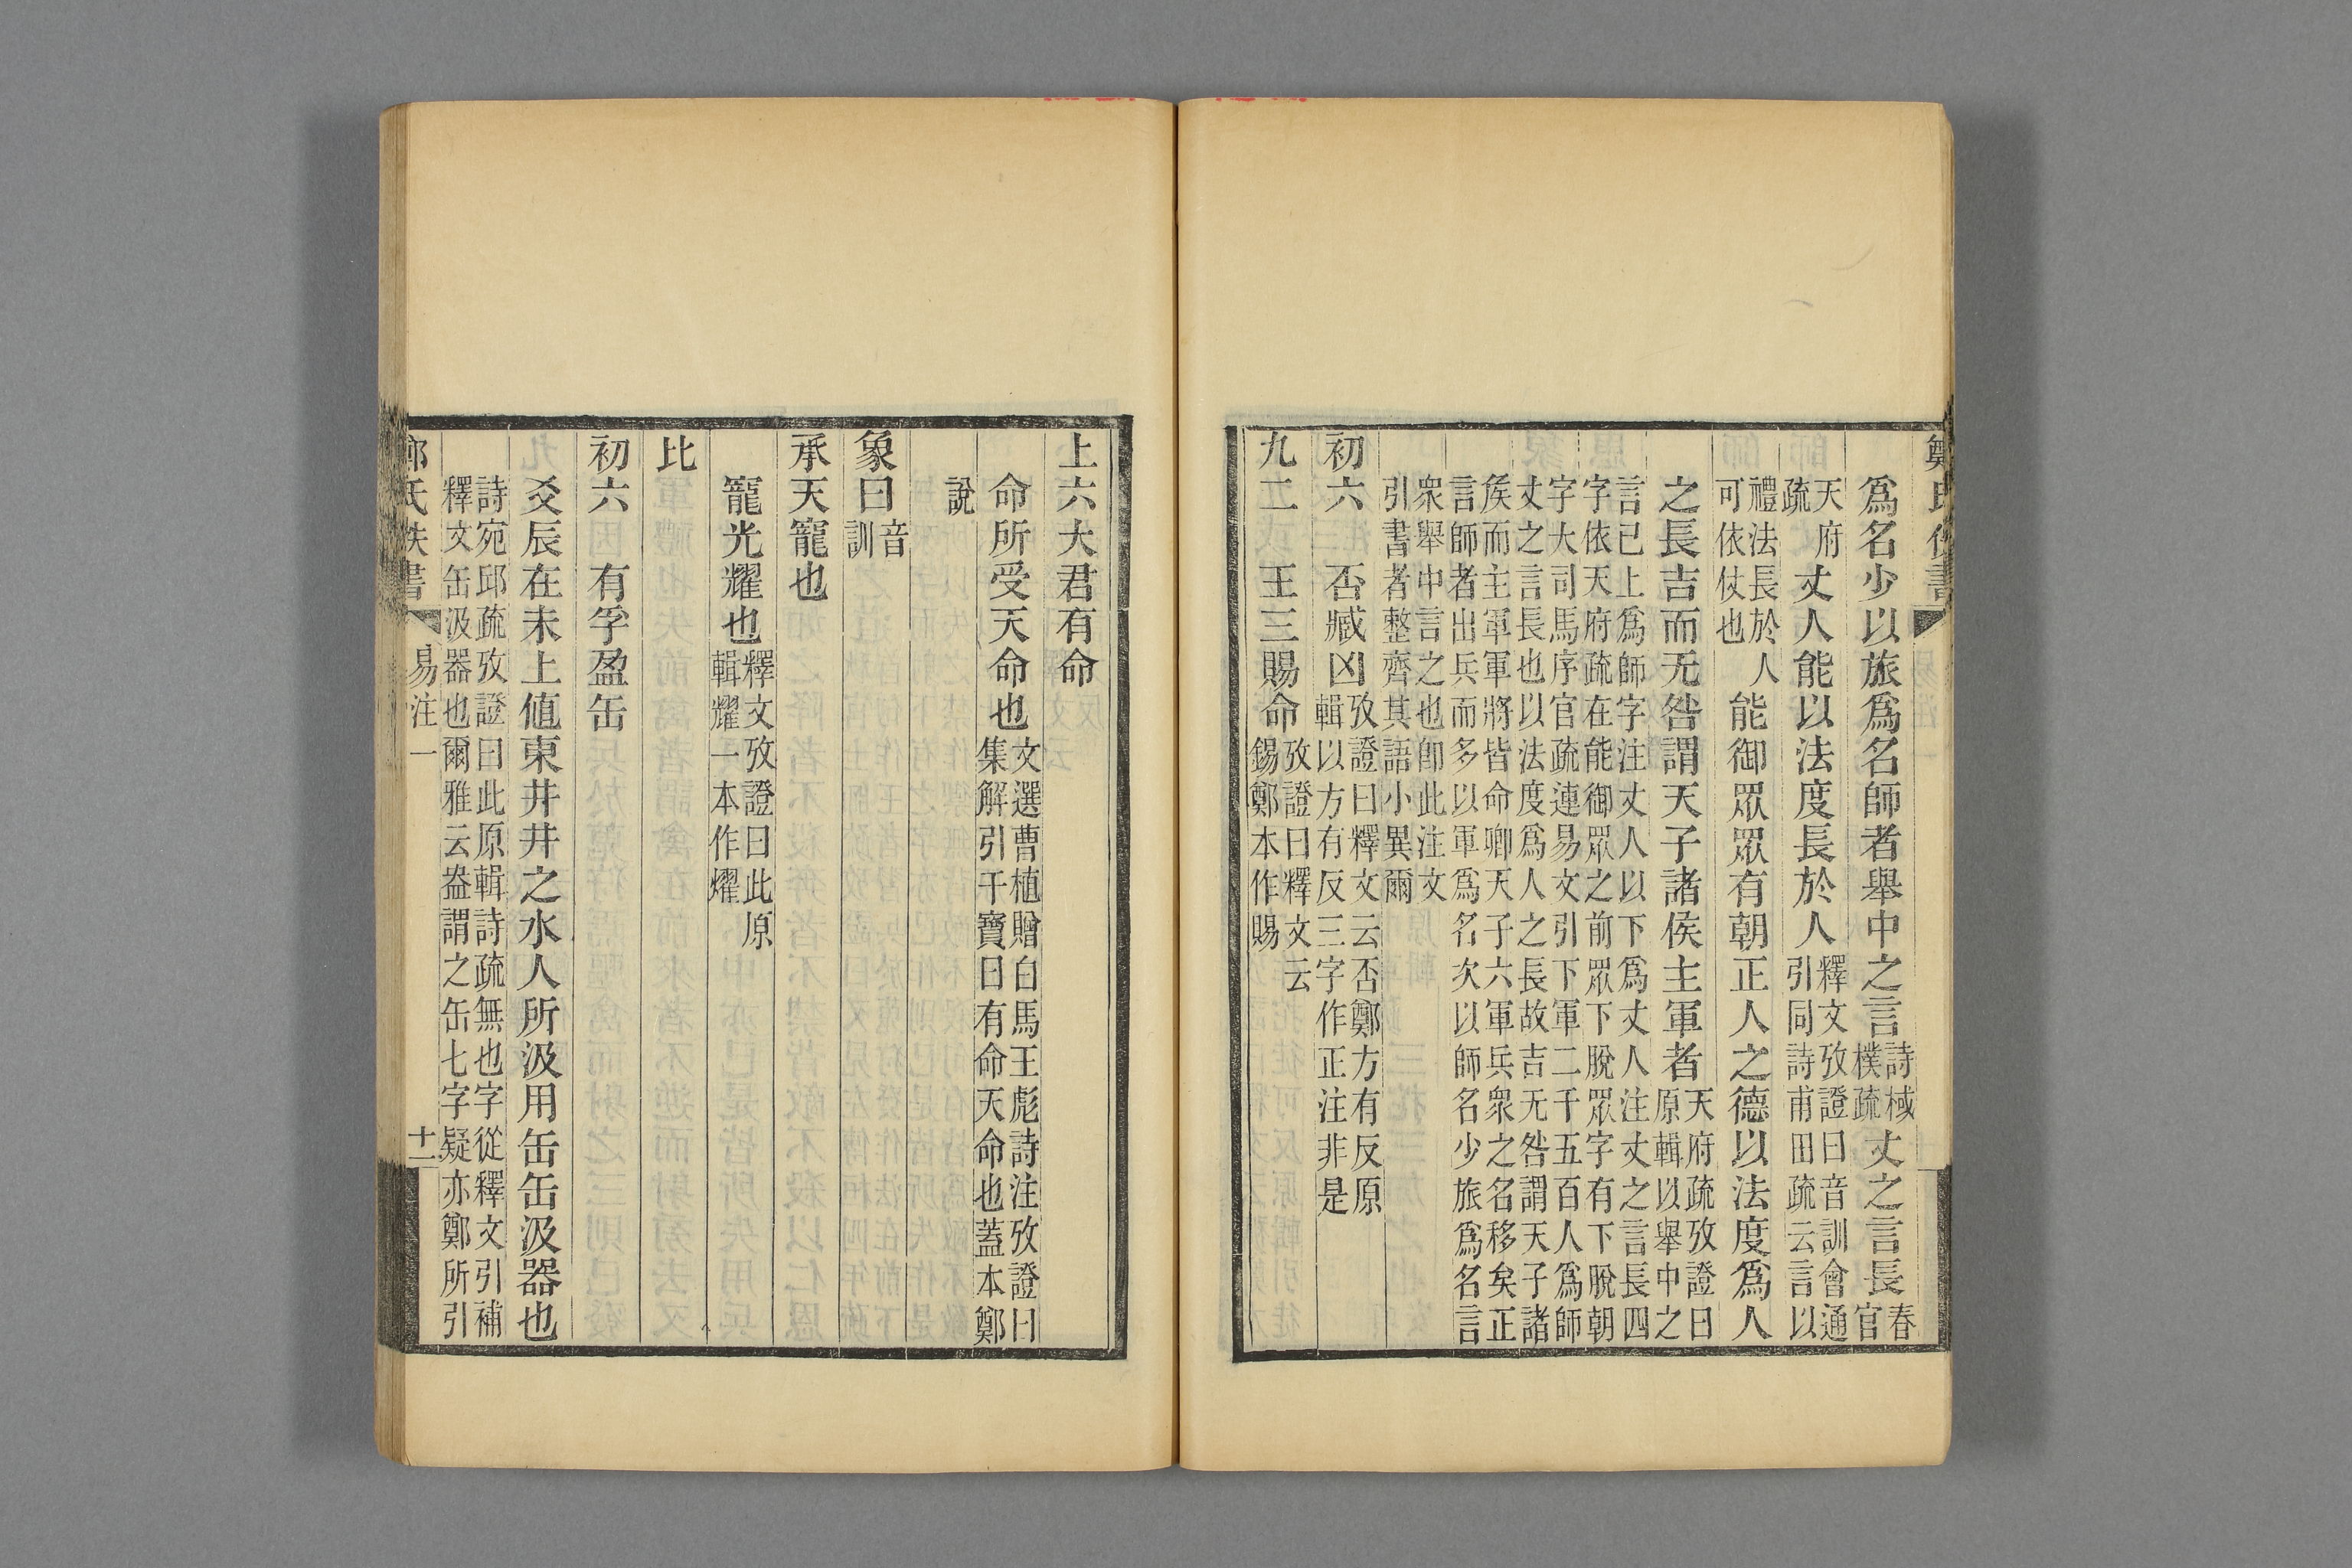 爲名少以旅爲名師者舉中之言詩棫樸疏丈之言長春官
天府疏丈人能以法度長於人釋文攷證曰音訓會通引同詩甫田疏云言以
禮法長於人可依仗也能御眾眾有朝正人之德以法度爲人
之長吉而无咎謂天子諸侯主軍者天府疏攷證曰原輯以舉中之
言已上爲師字注丈人以下爲丈人注丈之言長四
字依天府疏在能御眾之前眾下脫眾字有下脫朝
字大司馬序官疏連易文引下軍二千五百人爲師
丈之言長也以法度爲人之長故吉无咎謂天子諸
矦而主軍軍將皆命卿天子六軍兵衆之名移矣正
言師者出兵而多以軍爲名次以師名少旅爲名言
衆舉中言之也卽此注文
引書者整齊其語小異爾
初六 否臧凶攷證曰釋文云否鄭方有反原輯以方有反三字作正注非是
九二 王三賜命攷證曰釋文云錫鄭本作賜
上六大君有命
命所受天命也文選曹植贈白馬王彪詩注攷證曰集解引干寶曰有命天命也蓋本鄭
說
象曰音訓
承天寵也
寵光耀也釋文攷證曰此原輯耀一本作燿
比
初六 有孚盈缶
爻辰在未上值東井井之水人所汲用缶缶汲器也
詩宛邱疏攷證曰此原輯詩疏無也字從釋文引補
釋文缶汲器也爾雅云盎謂之缶七字疑亦鄭所引
鄭氏佚書 易注一 十二